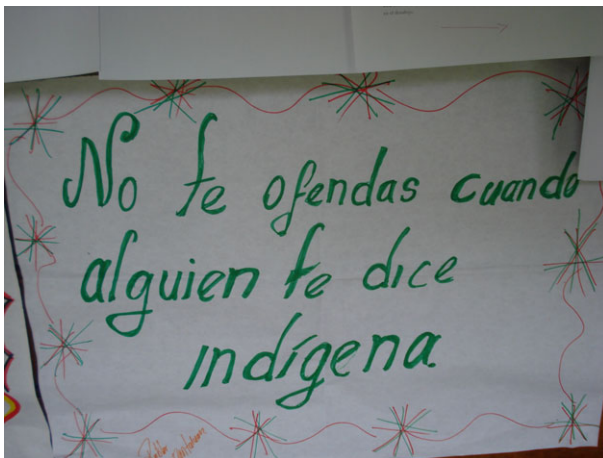 No te ofendas cuando
alguien te dice
indígena.